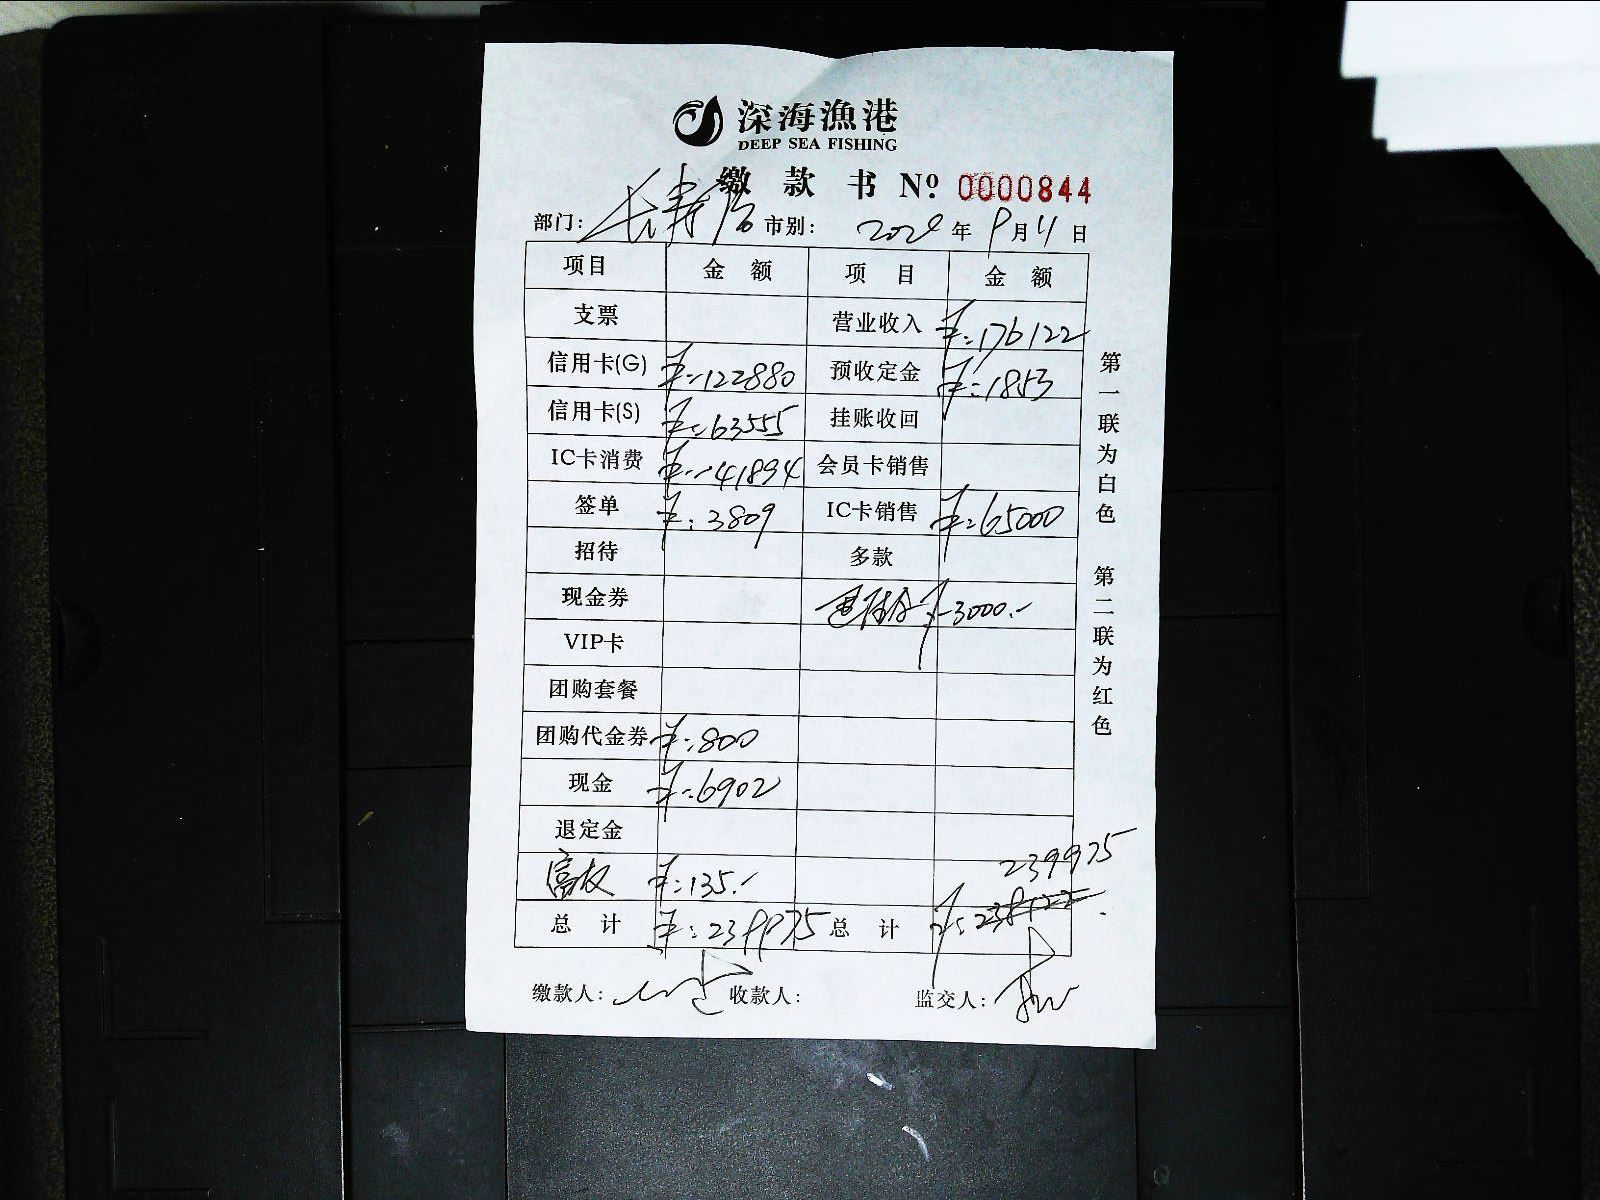 深海漁港
DEEP SEA FISHING
缴 款 书 Nº 0000844
部门: 长寿路 市别: 2024 年 9 月 11 日
项目 金 额 项 目 金 额
支票 营业收入 ¥:176122
信用卡(G) ¥:122880 预收定金 ¥:1853
信用卡(S) ¥:63555 挂账收回
IC卡消费 ¥:41894 会员卡销售
签单 ¥:3809 IC卡销售 ¥:65000
招待 多款
现金券 -3000.-
VIP卡
团购套餐
团购代金券 ¥:800
现金 ¥:6902
退定金
239975
¥:135.-
总 计 ¥:239975 总 计 ¥:238122
缴款人: 收款人: 监交人:
第一联为白色 第二联为红色